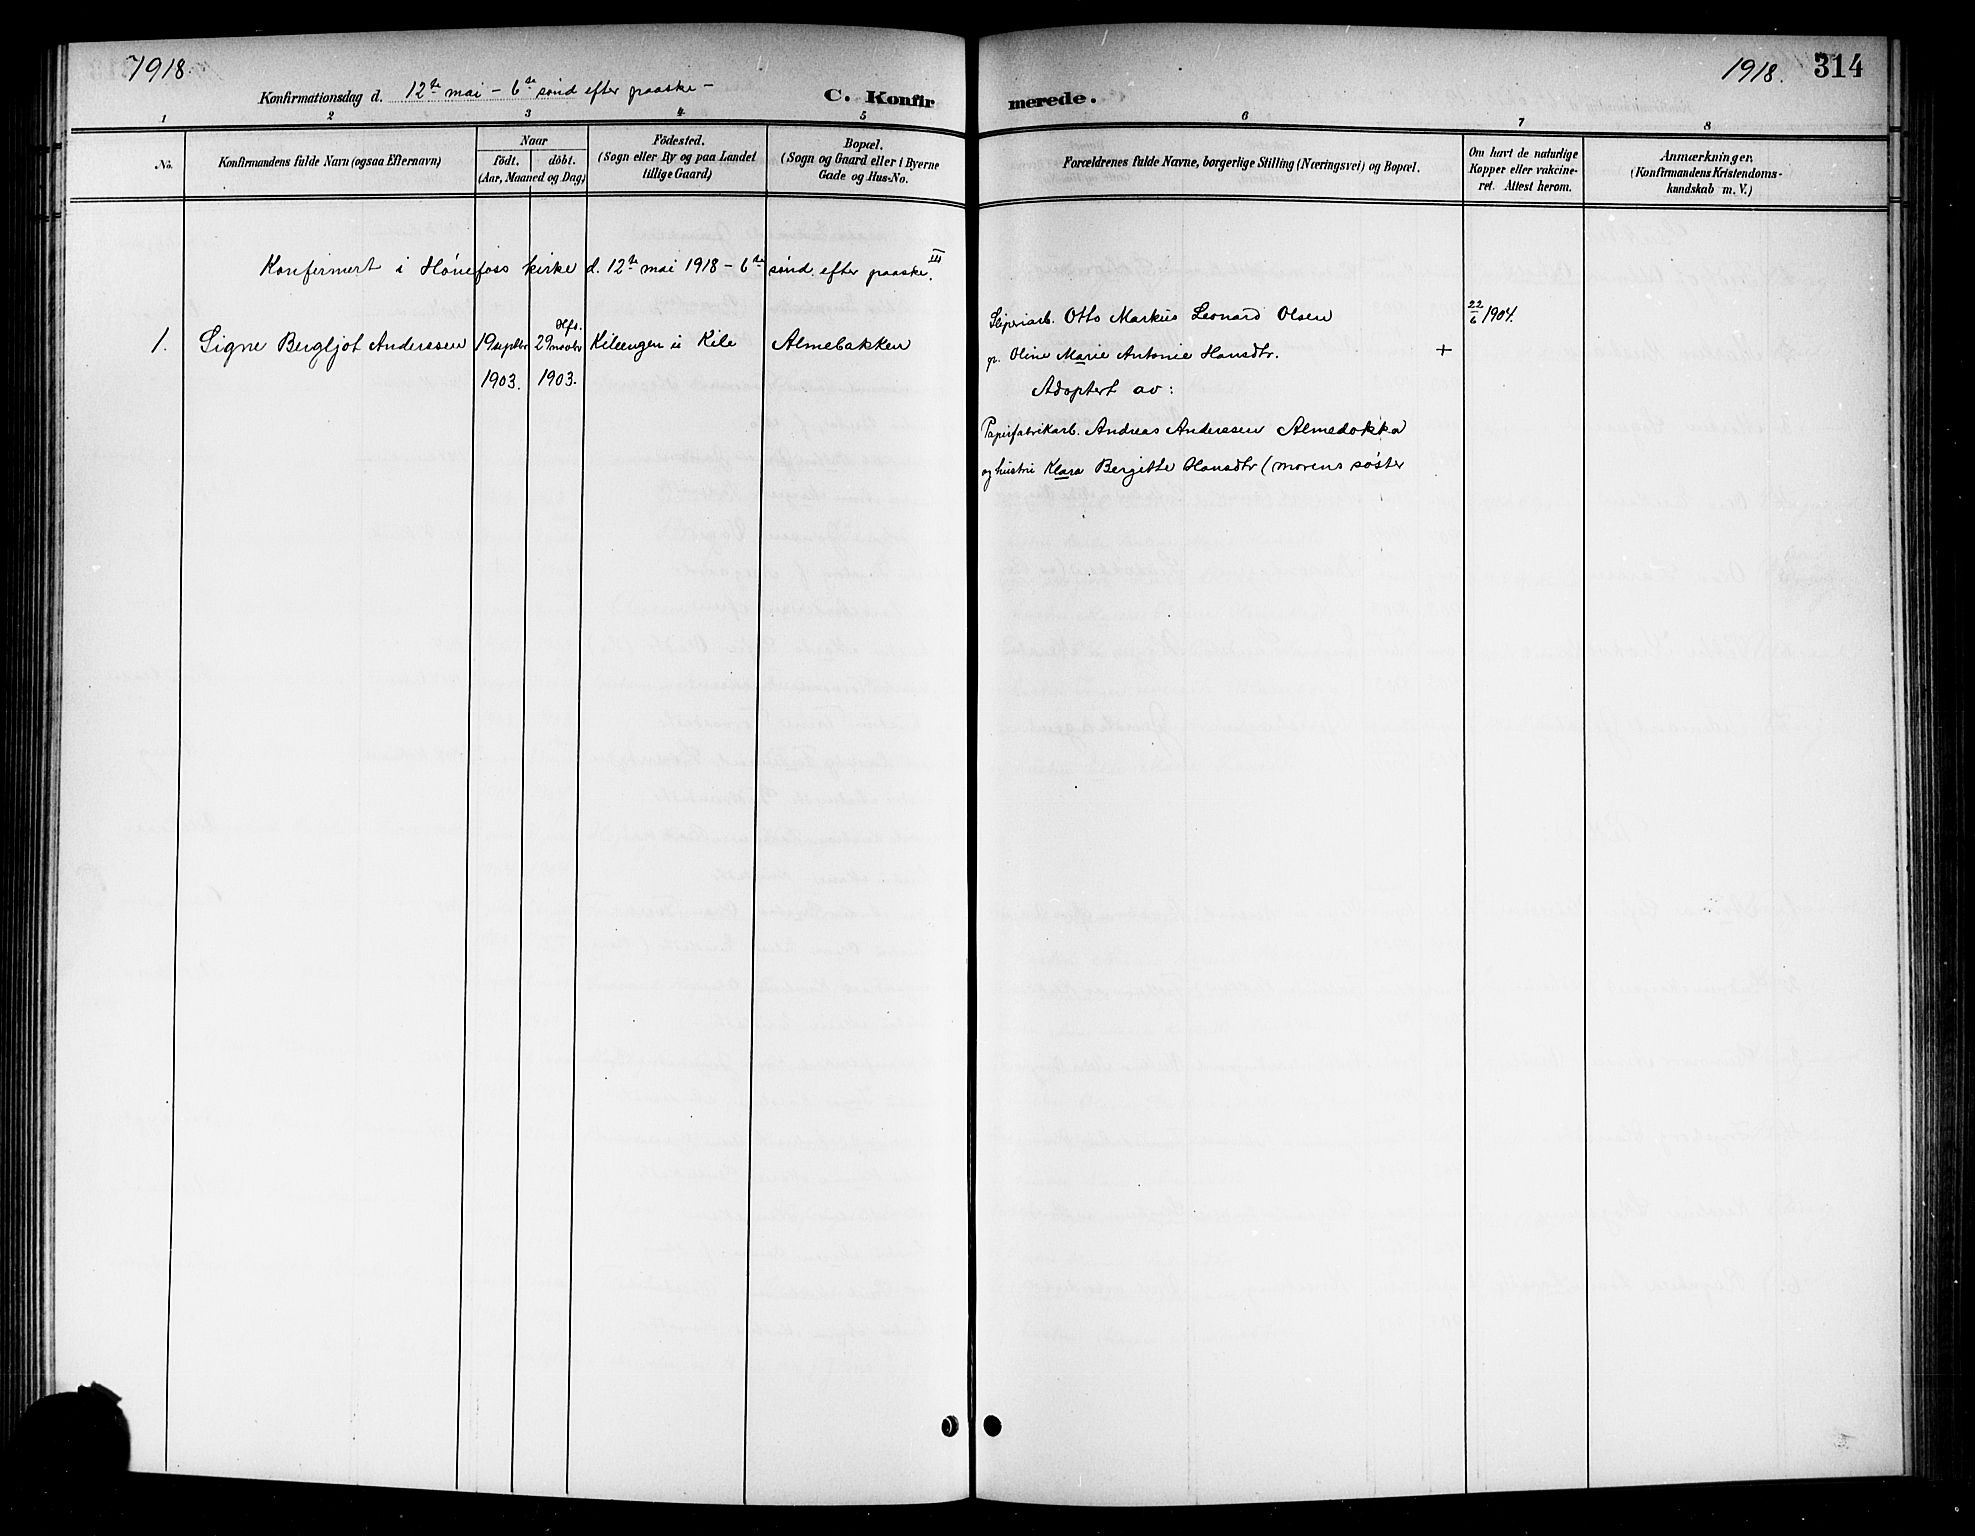 1918.
Konfirmationsdag d. 12te mai - 6te sønd efter paaske -
C. Konfir
merede.
1918. 314
1 2 3 4 5
6 7 8
No.
Konfirmandens fulde Navn (ogsaa Efternavn)
Naar
födt. döbt.
(Aar, Maaned og Dag)
Födested.
(Sogn eller By og paa Landet
tillige Gaard)
Bopæl.
(Sogn og Gaard eller i Byerne
Gade og Hus-No.
Forældrenes fulde Navne, borgerlige Stilling (Næringsvei) og Bopæl.
Om havt de naturlige
Kopper eller vakcine-
ret. Attest herom.
Anmærkninger.
(Konfirmandens Kristendoms-
kundskab m. V.)
Konfirmert i Hønefoss kirke d. 12te mai 1918 - 6te sønd. efter paaske. III
1. Signe Bergljot Anderssen
19 septbr
1903.
Hfs.
29 novbr
1903.
Kileengen u Kile
Almebakken
Sliperiarb. Otto Markus Leonard Olsen
g. Oline Marie Antonie Hansdtr. +
Adoptert av:
Papirfabrikarb. Andreas Anderssen Almedokka
og hustru Klara Bergitte Hansdtr (morens søster
22/6 1904.